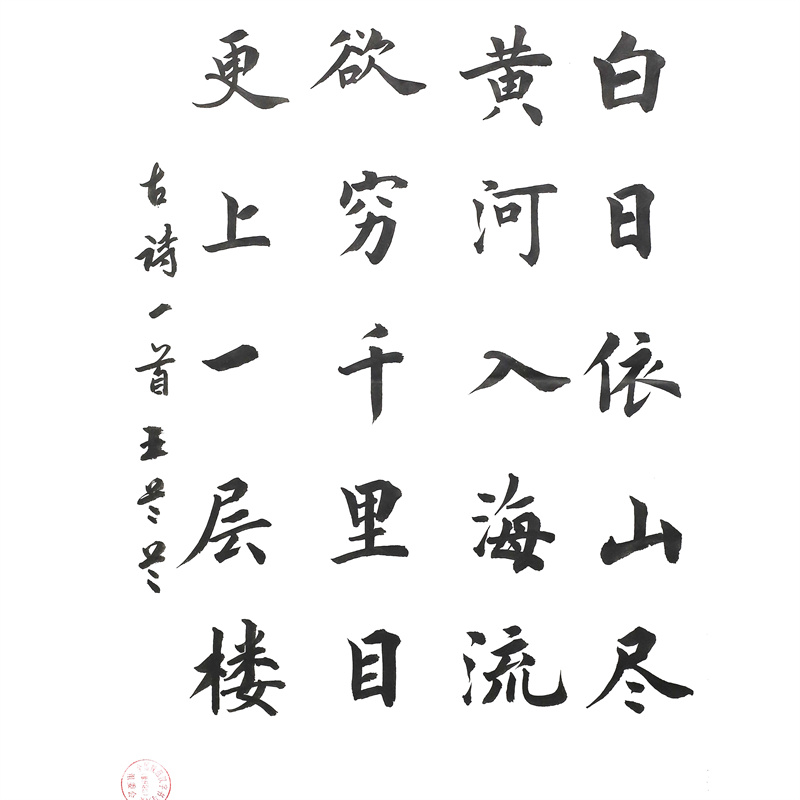 白日依山尽
黄河入海流
欲穷千里目
更上一层楼
古诗一首 王芸芸